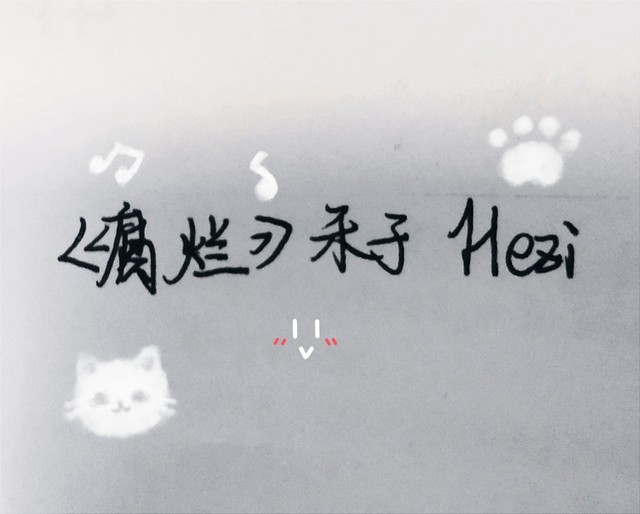 《腐烂》禾子 Hezi